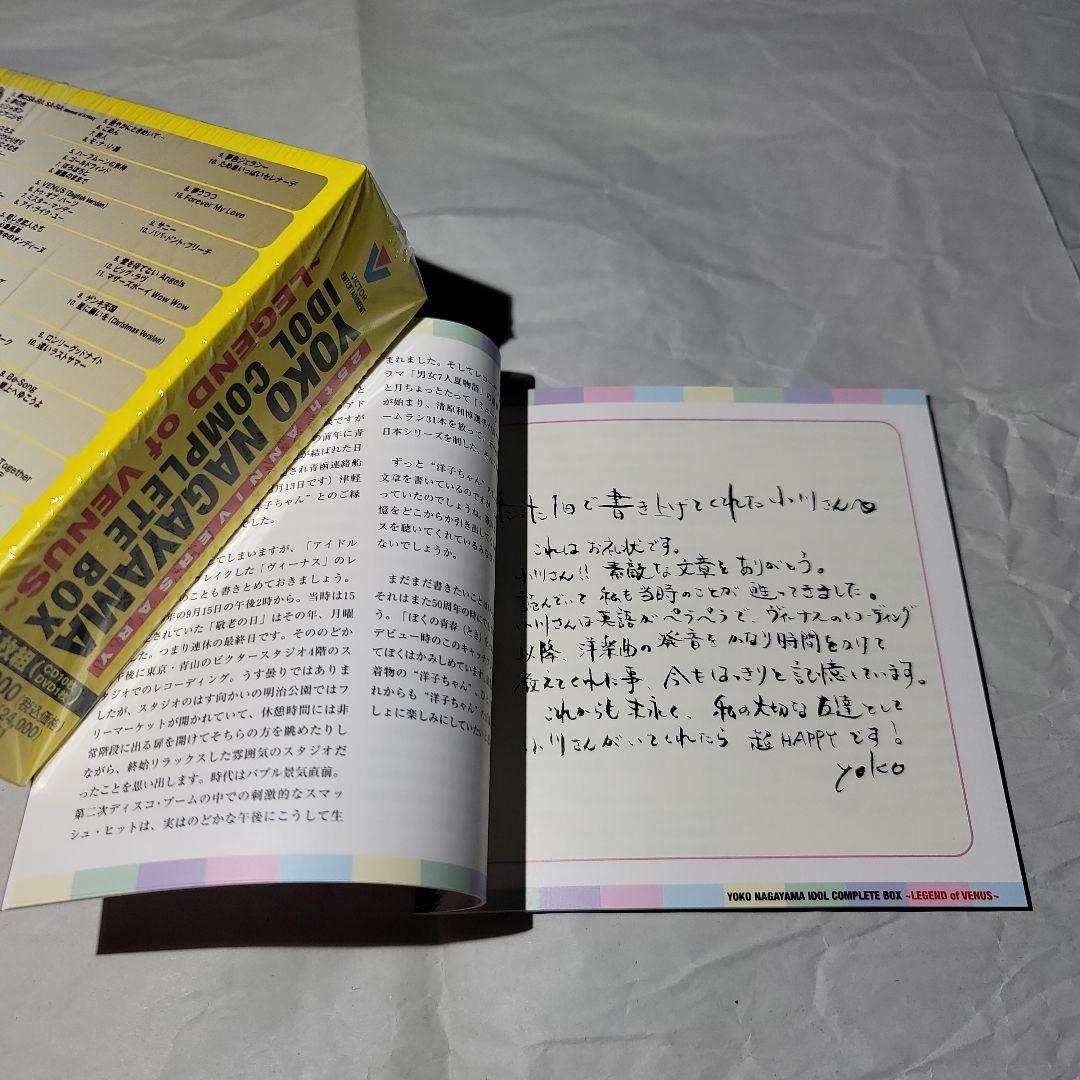 5. VENUS (English Version)
6. トゥ・オブ・ハーツ
7. ミスター・マンデー
8. アイ・ライク・ユー
5. ハーフムーンの気持
6. ゴールドウィンド
7. ぽろぽろと
6. ごめん
7. 旅人
8. モ・ナ・リ・座
9. 夢色ジェラシー
10. ため息いっぱいセレナーデ
9. 夢うつつ
10. Forever My Love
9. サニー
10. パパ・ドント・プリーチ
9. 愛を待てない Angels
10. ビッグ・ラヴ
11. マザーズボーイ Wow Wow
9. ゲンキ天国
10. 星に願いを (Christmas Version)
9. ロンリーグッドナイト
10. 遠いラストサマー
8. Be-Song
Together
VICTOR
ENTERTAINMENT
25th ANNIVERSARY
YOKO NAGAYAMA
IDOL COMPLETE BOX
~LEGEND of VENUS~
枚組 (CD10枚 DVD1枚)
税込価格
¥24,000
てしまいますが、「アイドル
レイクした「ヴィーナス」のレ
のことも書きとめておきましょう。
年の9月15日の午後2時から。当時は15
されていた「敬老の日」はその年、月曜
つまり連休の最終日です。そののどか
午後に東京・青山のビクタースタジオ4階のス
タジオでのレコーディング。うす曇りではありま
したが、スタジオのはす向かいの明治公園ではフ
リーマーケットが開かれていて、休憩時間には非
常階段に出る扉を開けてそちらの方を眺めたりし
ながら、終始リラックスした雰囲気のスタジオだ
ったことを思い出します。時代はバブル景気直前。
第二次ディスコ・ブームの中での刺激的なスマッ
シュ・ヒットは、実はのどかな午後にこうして生
まれました。そしてレコー
ラマ「男女7人夏物語」
と月ちょっとたって「ミュー
が始まり、清原和博選手が
ームラン31本を放って、
日本シリーズを制した、
ずっと“洋子ちゃん”
文章を書いているのですが
っていたのでしょうね。
憶をどこからか引き出して
スを聴いてくれているみな
ないでしょうか。
まだまだ書きたいことは
それはまた50周年の時に
う。「ぼくの青春(とき)を
デビュー時のこのキャッチ
てぼくはかみしめています。
着物の“洋子ちゃん”、
れからも“洋子ちゃん”
しょに楽しみにしていたい
たった1日で書き上げてくれた小川さんへ
これはお礼状です。
小川さん!! 素敵な文章をありがとう。
読んでいて私も当時のことが甦ってきました。
小川さんは英語がペラペラで、ヴィーナスのレコーディング
以降、洋楽曲の発音をかなり時間をかけて
教えてくれた事、今もはっきりと記憶しています。
これからも末永く、私の大切な友達として
小川さんがいてくれたら超HAPPYです!
yoko
YOKO NAGAYAMA IDOL COMPLETE BOX ~LEGEND of VENUS~